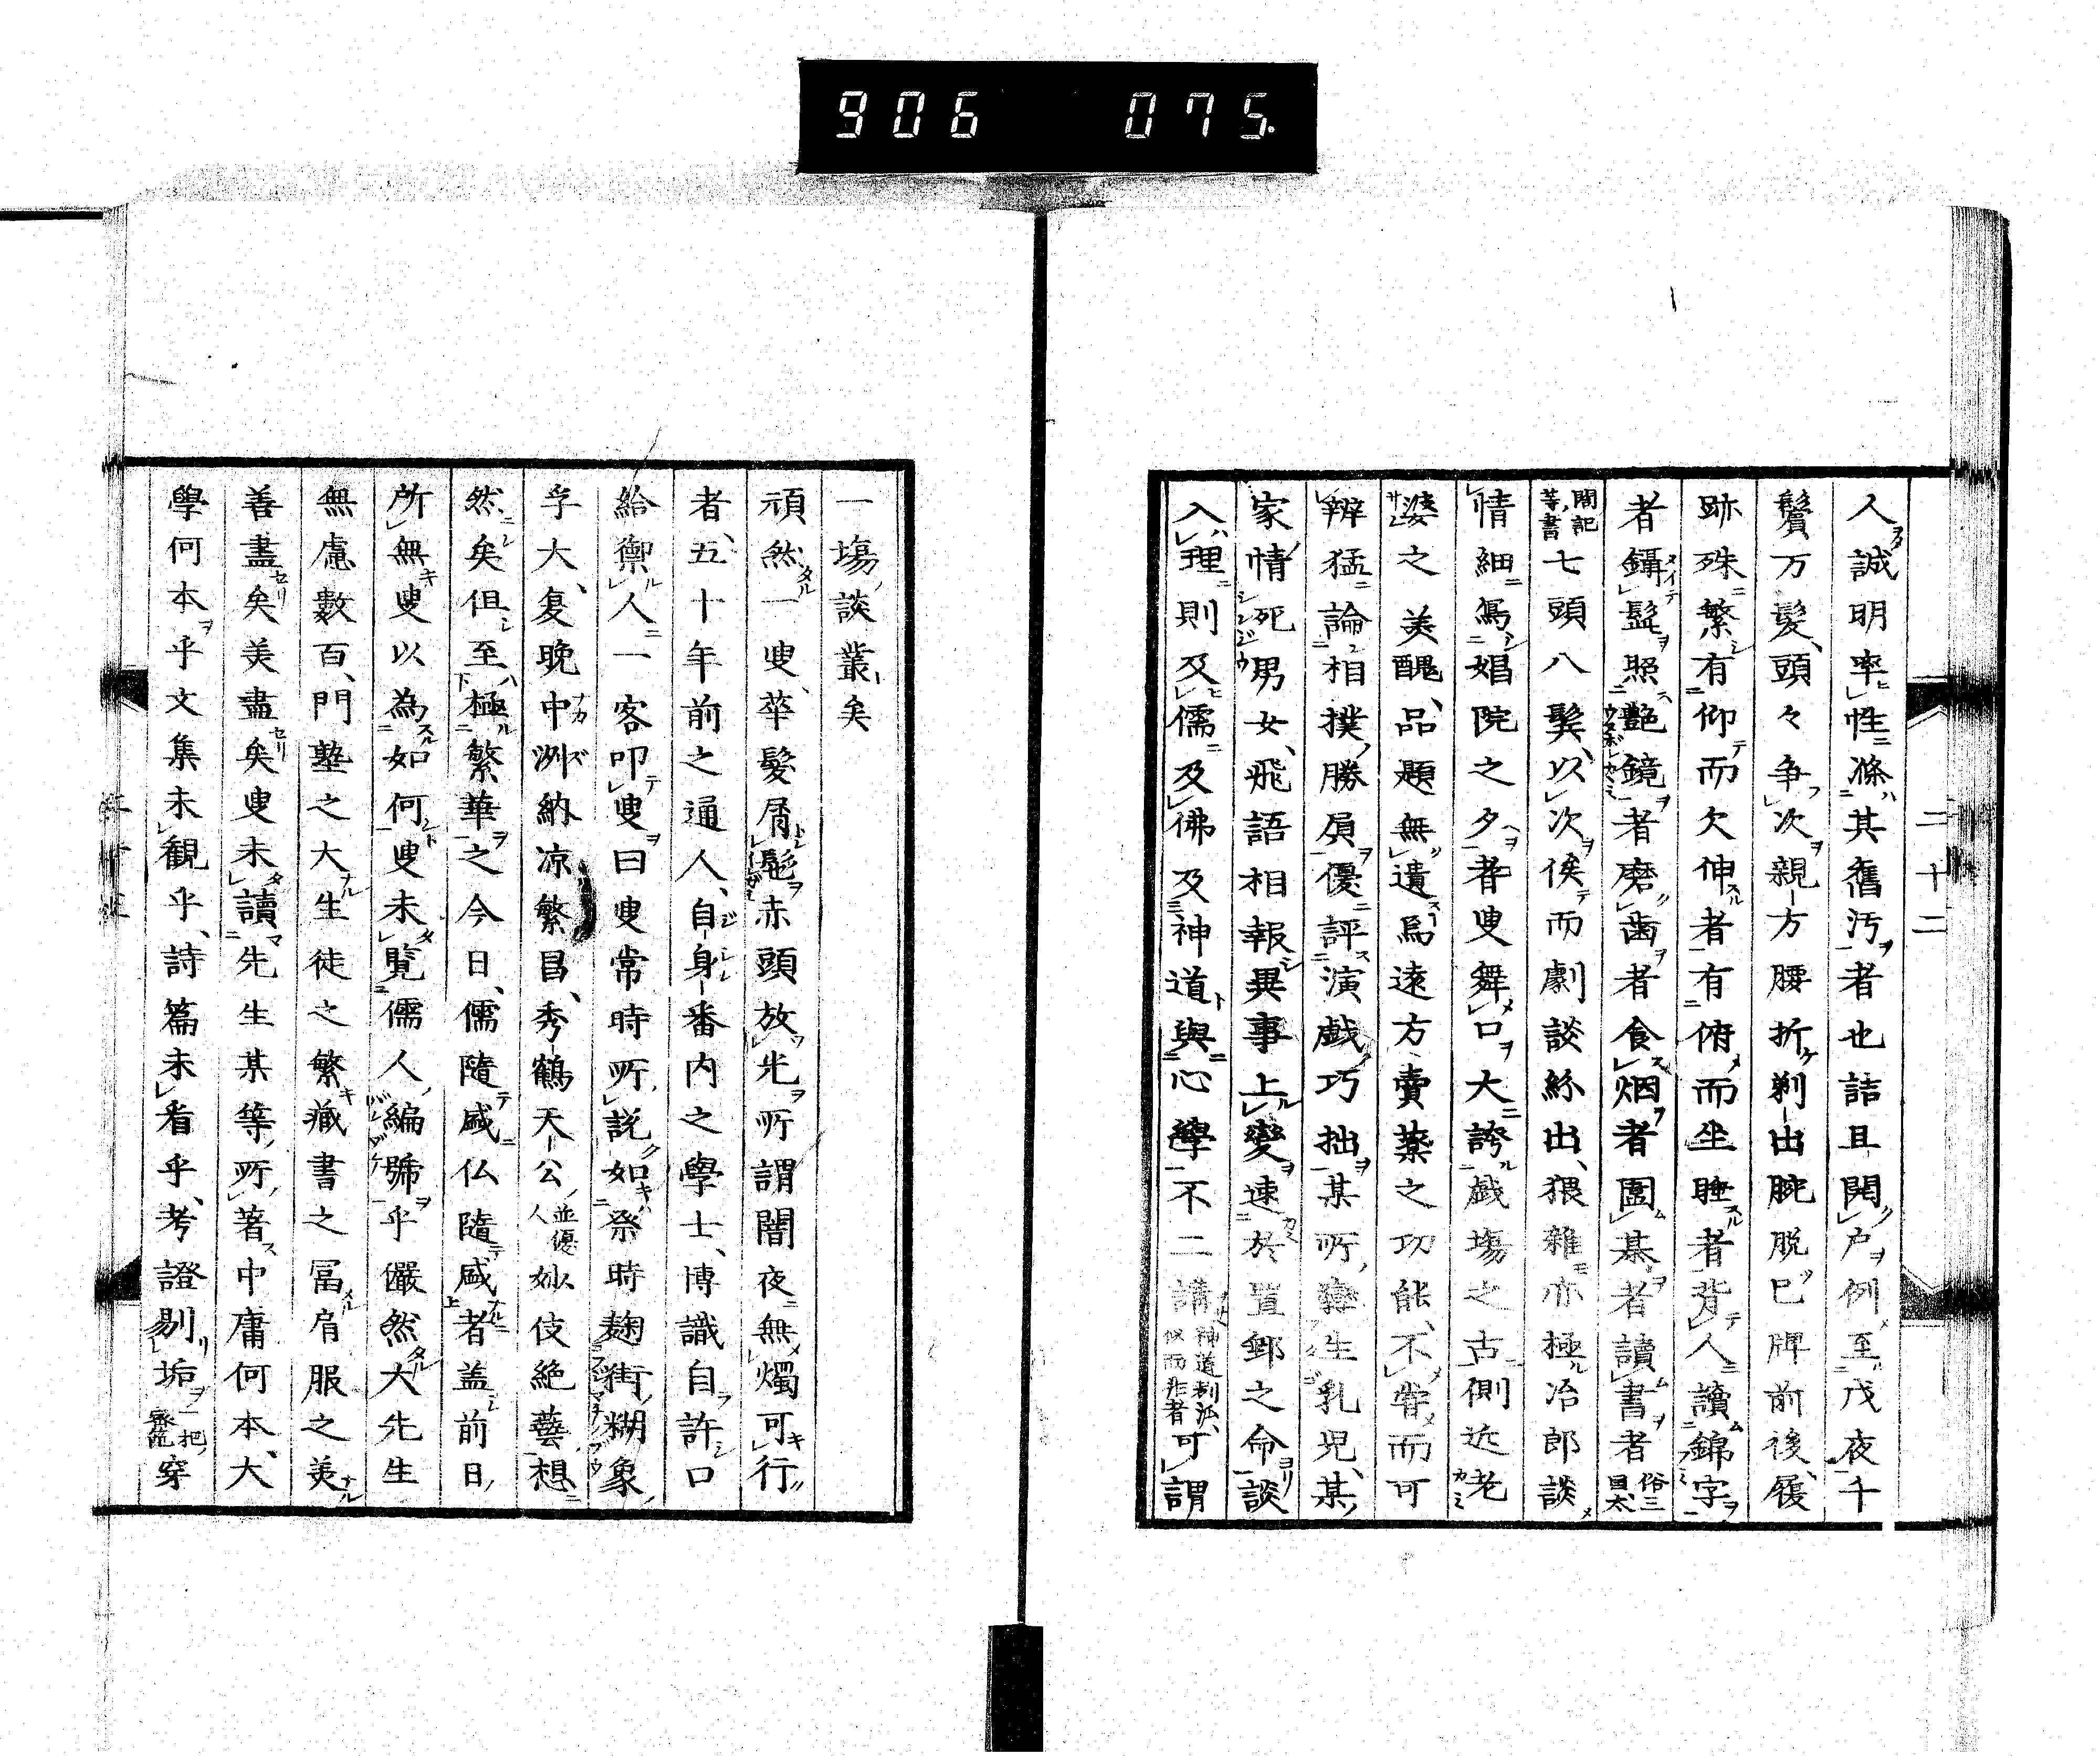 906 075.
二十二
人誠明率性滌其舊汚者也詰且開戸例至戊夜千
鬢万髮、頭々争次親方腰折剃出腕脱巳牌前後、履
跡殊繁有仰而欠伸者有俯而坐睡者背人讀錦字
者鑷髭照艶鏡者磨齒者食烟者圍棊者讀書者俗三国太
閤記等書七頭八髮、以次俟而劇談紛出、猥雜亦極冶郎談
情細焉娼院之夕者叟舞口大誇戯場之古側近老
婆之美醜、品題無遺焉遠方賣藥之功能、不嘗而可
辨猛論相撲勝負優評演戯巧拙某所孿生乳児、某
家情死男女、飛語相報異事上變速於置郵之命談
入理則及儒及佛及神道與心學不二講神道利法、似而非者可謂
一塲談叢矣
頑然一叟、華髮屑髢赤頭放光所謂闇夜無燭可行
者、五十年前之通人、自身番内之學士、博識自許口
給禦人一客叩叟曰叟常時所説如祭時麹街糊象
孚大、夏晩中洲納凉繁昌、秀鶴天公並優人妙伎絶藝想
然矣但至極繁華之今日、儒隨盛仏隨盛者盖前日
所無叟以為如何叟未覽儒人編號乎儼然大先生
無慮數百、門塾之大生徒之繁藏書之冨肩服之美
善盡矣美盡矣叟未讀先生某等所著中庸何本、大
學何本乎文集未観乎、詩篇未看乎、考證剔垢一把穿